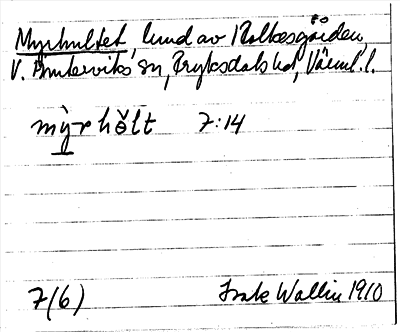 Myrhultet, lund av Kolkesgården,
V. Ämterviks sn, Fryksdals hd, Värml. l.
mỳr hŏlt 7:14
7(6) Frate Wallin 1910